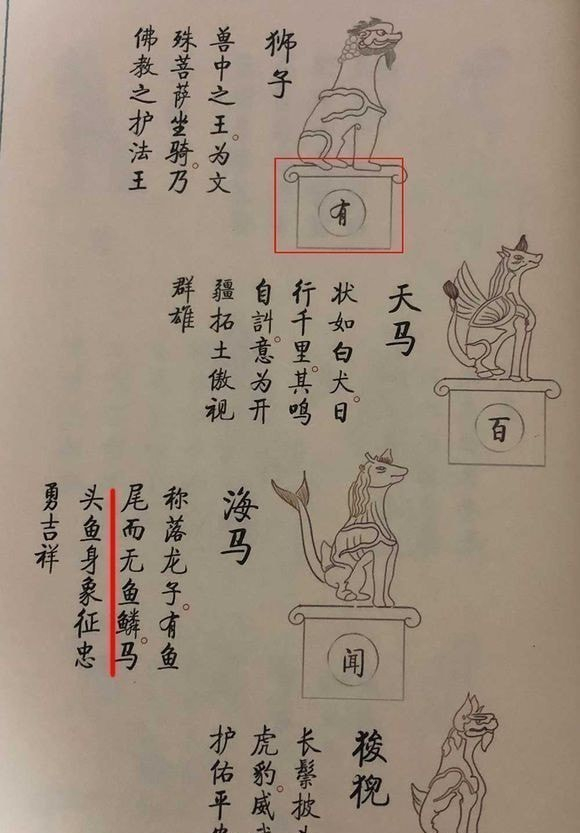 有
狮子
兽中之王。为文
殊菩萨坐骑。乃
佛教之护法王
百
天马
状如白犬。日
行千里。其鸣
自訆。意为开
疆拓土傲视
群雄
闻
海马
称落龙子。有鱼
尾而无鱼鳞。马
头鱼身象征忠
勇吉祥
狻猊
长鬃披
虎豹。威
护佑平